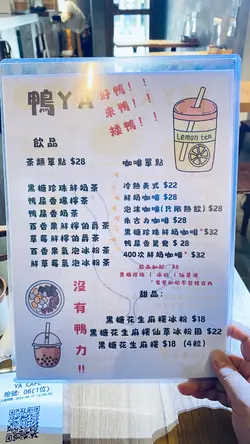 鴨YA
好鴨！！
來鴨！！
錢鴨！！
Lemon tea
飲品
茶類單點 $28
黑糖珍珠鮮奶茶
鴨屎香爆檸茶
鴨屎香奶茶
百香果鮮檸伯爵茶
草莓鮮檸伯爵茶
百香果氣泡冰粉茶
鮮草莓氣泡冰粉茶
咖啡單點
冷熱美式 $22
鮮奶咖啡 $28
泡沫咖啡(只限熱飲) $28
朱古力咖啡 $28
黑糖珍珠鮮奶咖啡 $32
鴨屎香鴛鴦 $28
400次鮮奶咖啡 $32
沒有鴨力!!
甜品:
黑糖花生麻糬冰粉 $18
黑糖花生麻糬仙草冰粉圓 $22
黑糖花生麻糬 $18 (4粒)
YA CAFE
枱號: 06(1位)